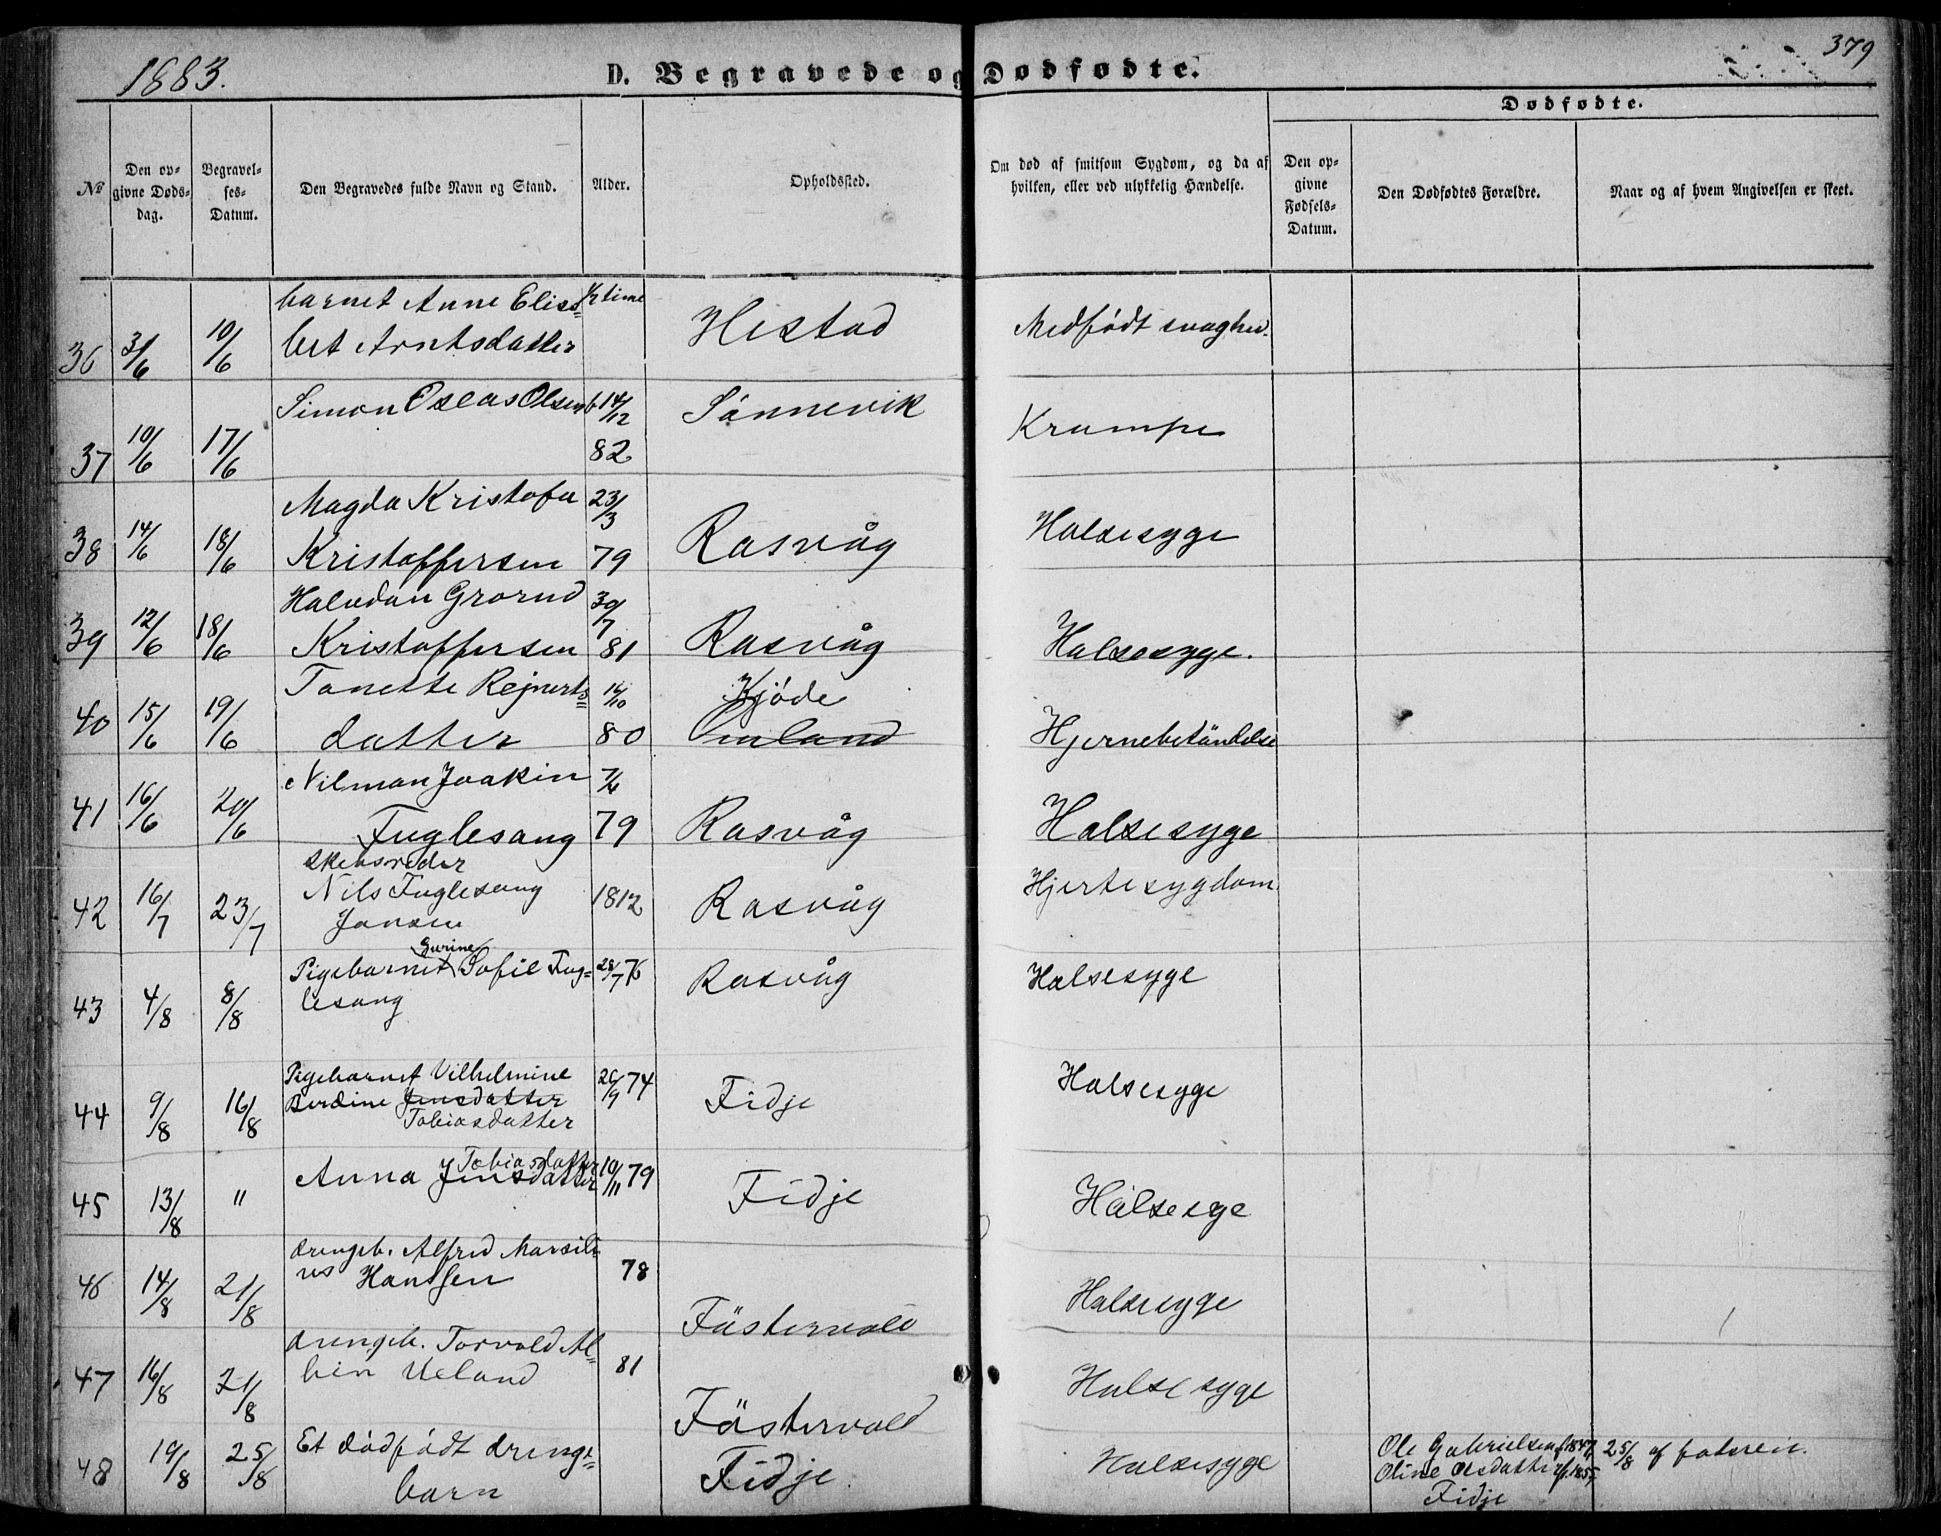 1883.
D. Begravede og Dødfødte.
379
Dødfødte.
№
Den op-
givne Døds-
dag.
Begravel-
ses-
Datum.
Den Begravedes fulde Navn og Stand.
Alder.
Opholdssted.
Om død af smitsom Sygdom, og da af
hvilken, eller ved ulykkelig Hændelse.
Den op-
givne
Fødsels-
Datum.
Den Dødfødtes Forældre.
Naar og af hvem Angivelsen er skeet.
barnet Anne Elisa= ½ time
36 3/6 10/6 bet Arntsdatter Histad Medfødt svaghed.
Simon Oseas Olsen f 14/12 Sönnevik
37 10/6 17/6 82 Krampe
Magda Kristofa 23/3
38 14/6 18/6 Kristoffersen 79 Rasvåg Halsesyge
Halvdan Grorud 30/7
39 12/6 18/6 Kristoffersen 81 Rasvåg Halsesyge.
Tanette Rejnerts= 14/10 Kjöde
40 15/6 19/6 datter 80 Omland Hjernebetändelse
Nilman Joakin 7/4
41 16/6 20/6 Fuglesang 79 Rasvåg Halsesyge
skibsreder
42 16/7 23/7 Nils Fuglesang 1812 Rasvåg Hjertesygdom
Jansen
Gurine
Pigebarnet Sofie Fug= 28/7 76 Rasvåg Halsesyge
43 4/8 8/8 lesang
Pigebarnet Vilhelmine 26/9 74
44 9/8 16/8 Berdine Jensdatter Fidje Halsesyge
Tobiasdatter
Tobiasdatter
45 13/8 " Anna Jensdatter 10/11 79 Fidje Halsesge
drengeb. Alfred Marsili=
46 14/8 21/8 us Hanssen 78 Fästervold Halsesyge
drengeb. Torvald Al=
47 16/8 21/8 bin Ueland 81 Fästervold Halsesyge
48 19/8 25/8 Et dödfödt drenge= Fidje Halsesyge
barn
Ole Gabrielsen f. 1847 25/8 af faderen.
Oline Olsdatter f. 1855,
Fidje